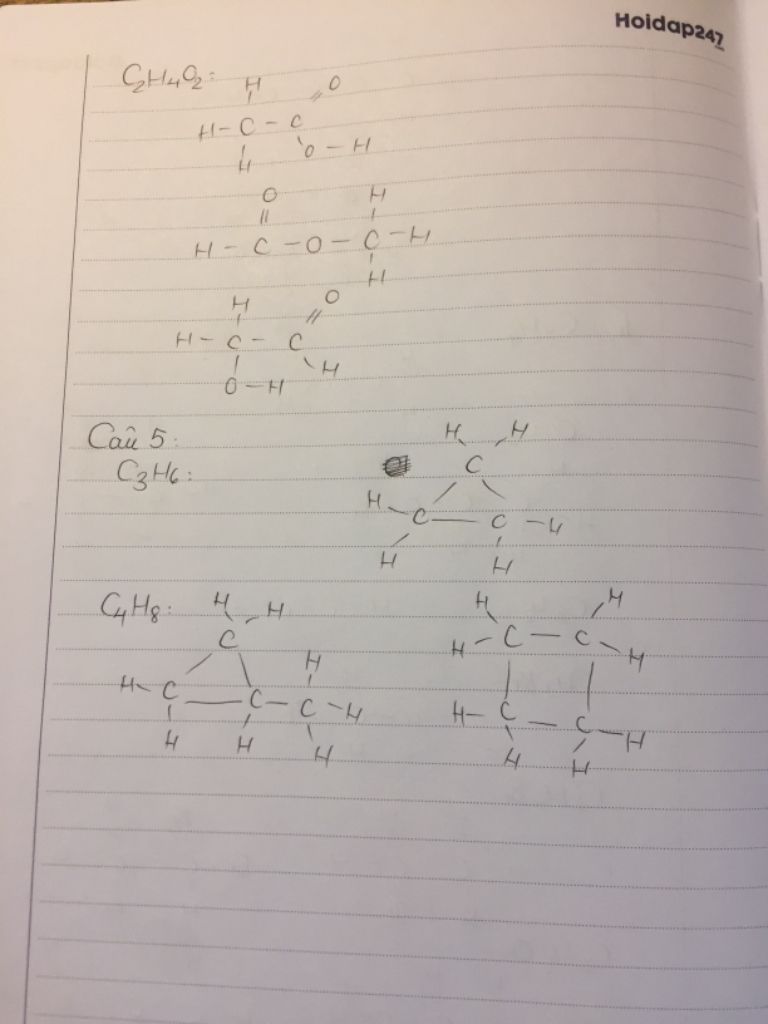 Hoidap247
C2H4O2:
H O
H - C - C
H O - H
O H
|| |
H - C - O - C - H
H
H O
H - C - C
H
O - H
Câu 5:
C3H6:
H H
C
H
C — C - H
H H
C4H8: H H
C
H
H - C — C - C - H
H H H
H H
H - C — C - H
H - C — C - H
H H